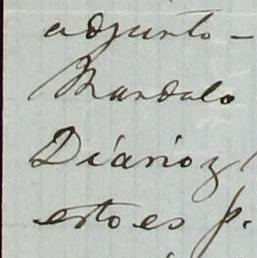 adjunto —
Mandalo
Diario y
esto es p.